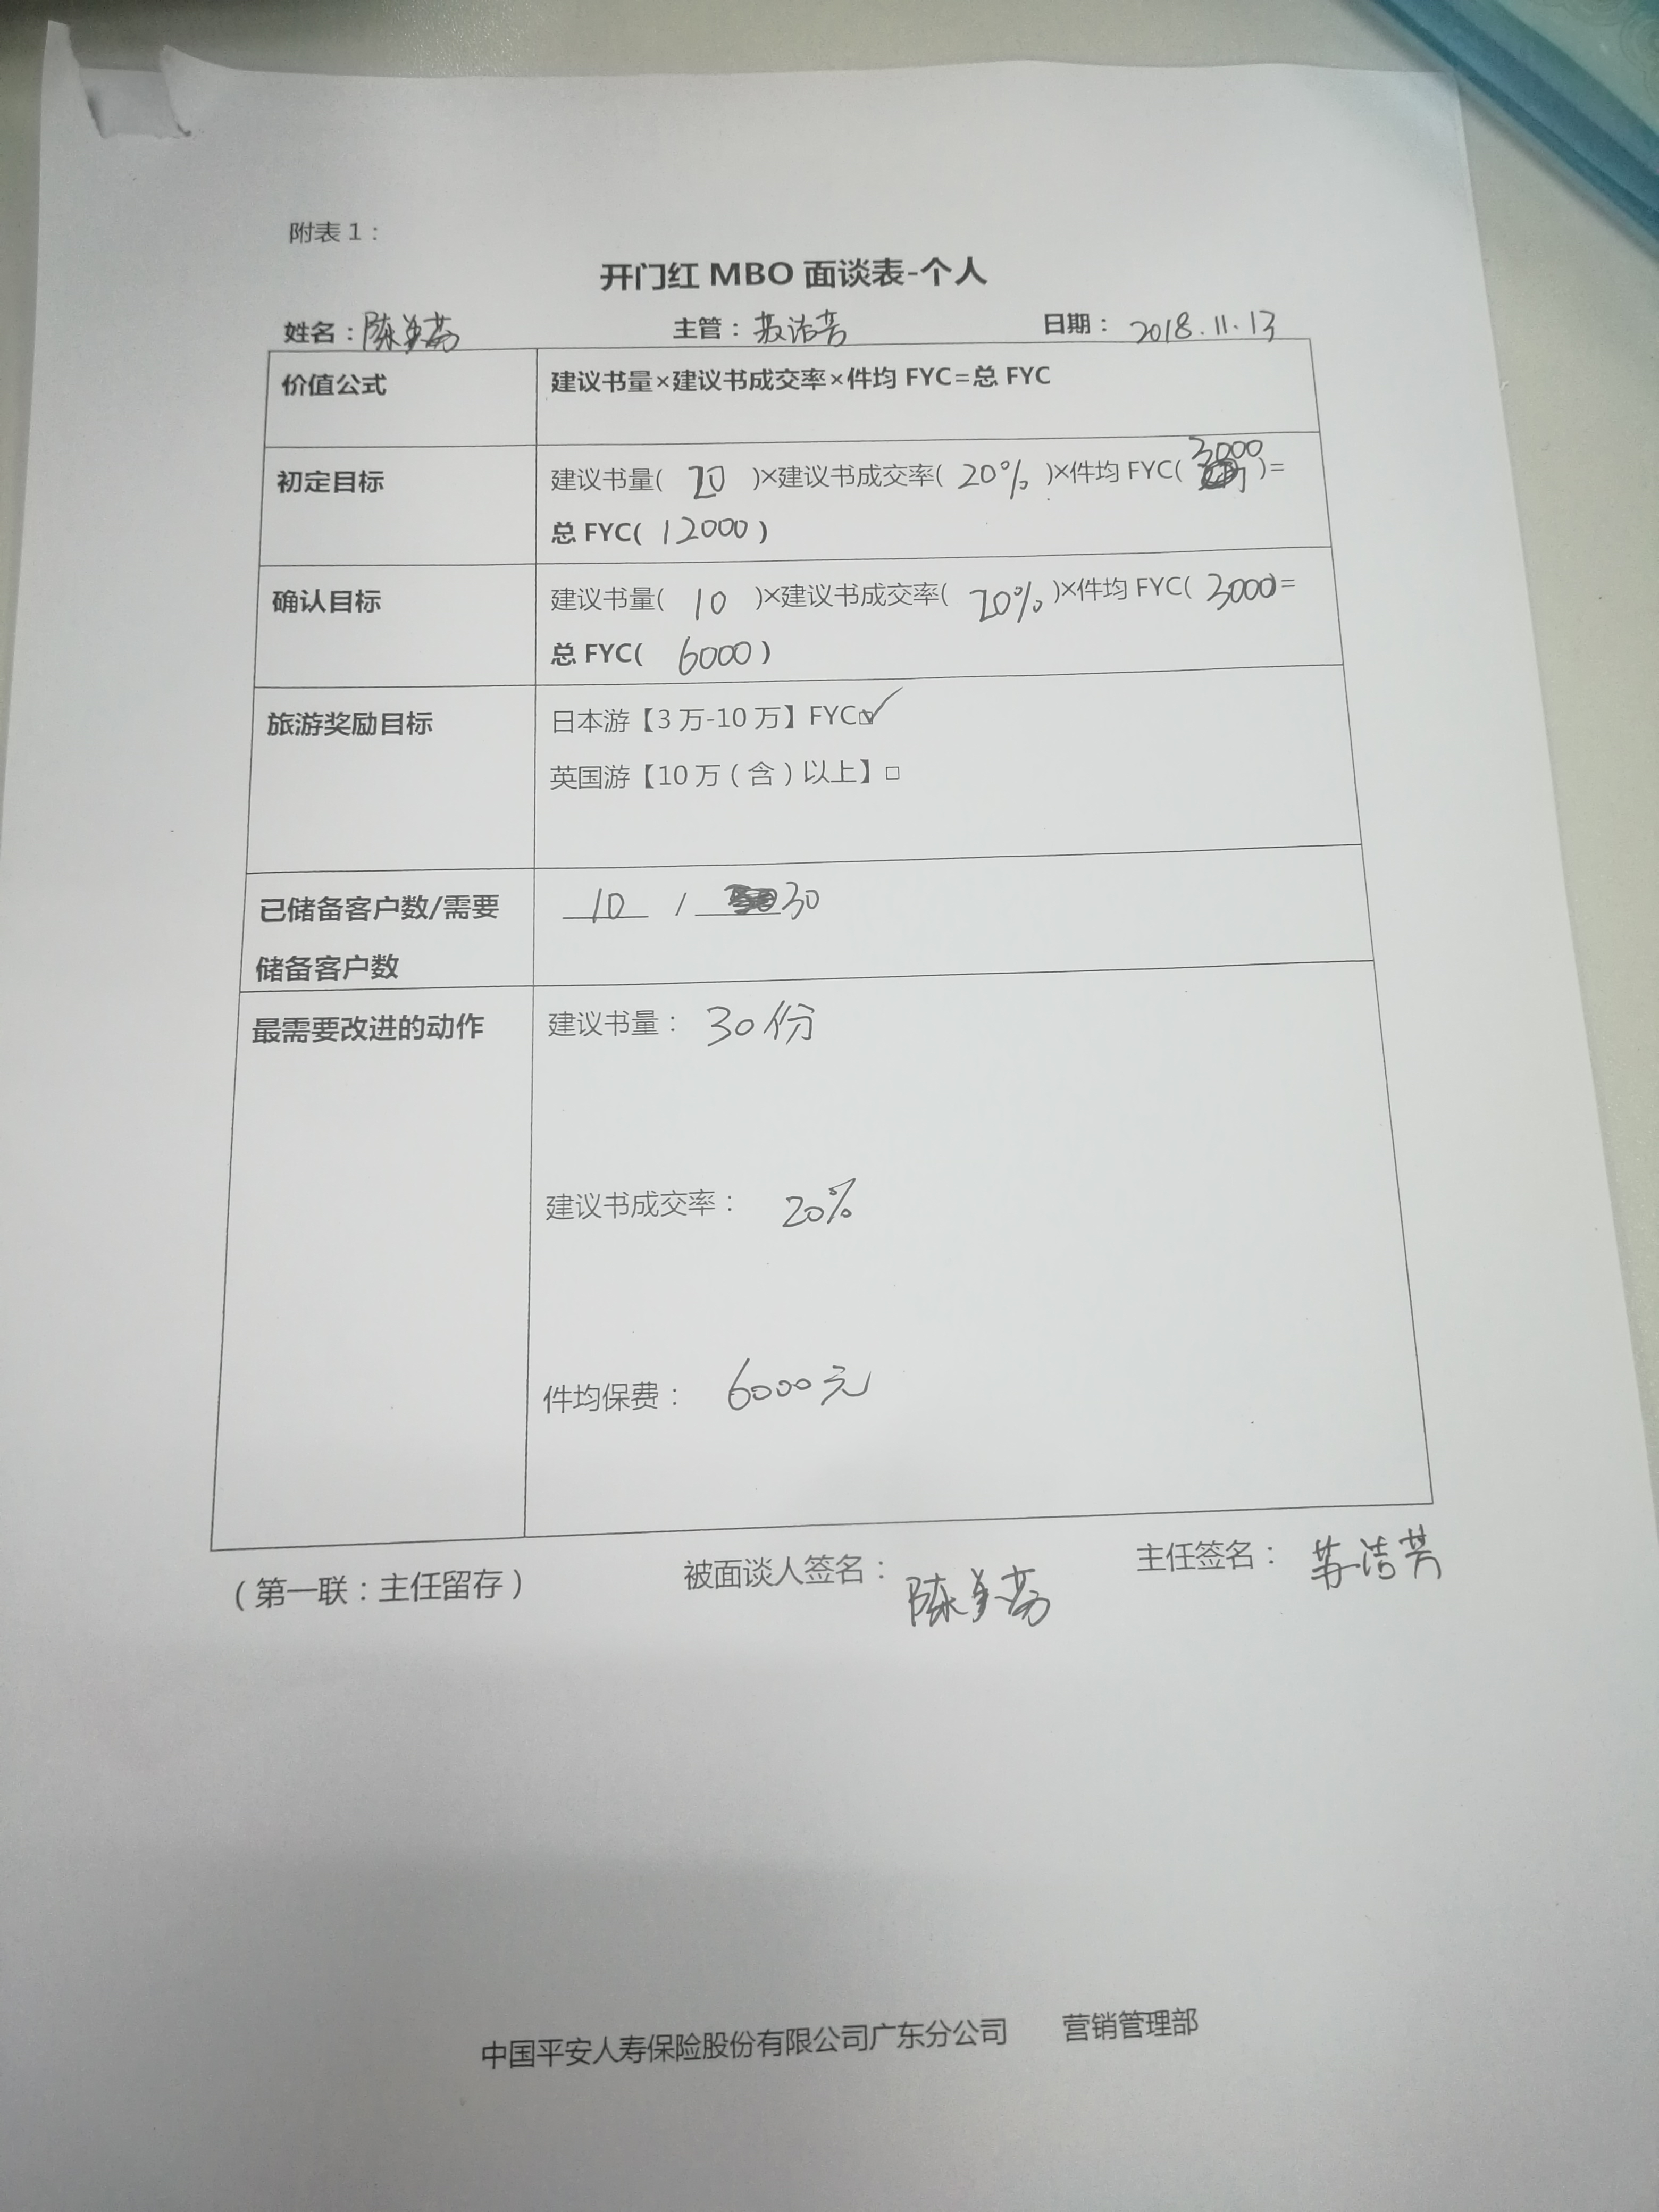 附表 1：
开门红 MBO 面谈表-个人
姓名：陈美芬 主管：苏洁芳 日期：2018.11.13
价值公式 建议书量×建议书成交率×件均 FYC=总 FYC
初定目标 建议书量( 20 )×建议书成交率( 20% )×件均 FYC( 3000 )=
总 FYC( 12000 )
确认目标 建议书量( 10 )×建议书成交率( 20% )×件均 FYC( 3000)=
总 FYC( 6000 )
旅游奖励目标 日本游【3 万-10 万】FYC☑
英国游【10 万（含）以上】□
已储备客户数/需要 10 / 30
储备客户数
最需要改进的动作 建议书量：30份
建议书成交率：20%
件均保费：6000元
（第一联：主任留存） 被面谈人签名：陈美芬 主任签名：苏洁芳
中国平安人寿保险股份有限公司广东分公司 营销管理部